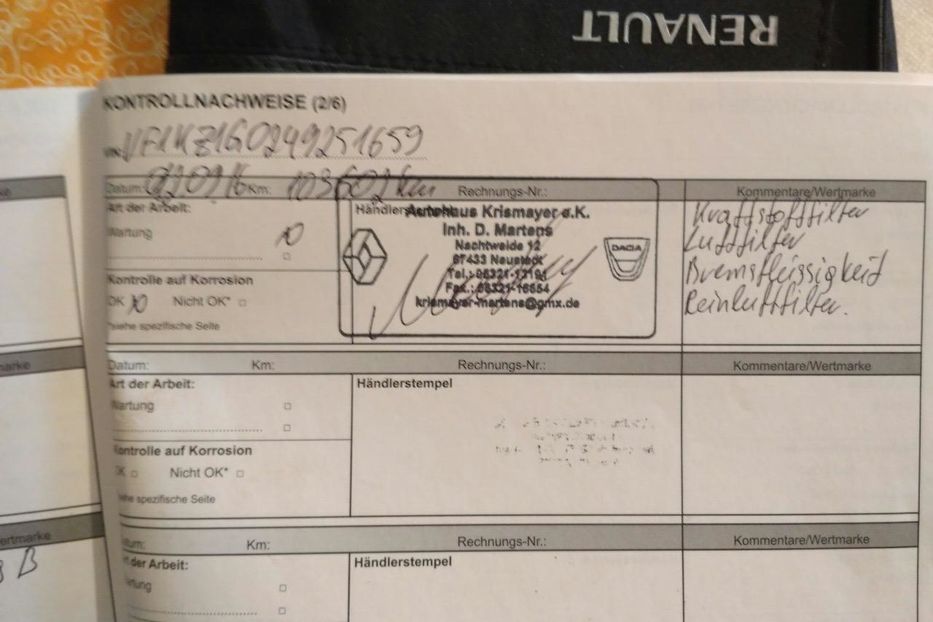 RENAULT
KONTROLLNACHWEISE (2/6)
VIN: VF1KZ1G0249251659
Datum: Km: 103602 km Rechnungs-Nr.: Kommentare/Wertmarke
Art der Arbeit: Händlerstempel
Wartung
Kontrolle auf Korrosion
OK Nicht OK*
*siehe spezifische Seite
Autohaus Krismayer e.K.
Inh. D. Martens
Nachtweide 12
67433 Neustadt
Tel.: 06321-13191
Fax.: 06321-16654
krismayer-martens@gmx.de
DACIA
Kraftstofffilter
Luftfilter
Bremsflüssigkeit
Reinluftfilter.
Datum: Km: Rechnungs-Nr.: Kommentare/Wertmarke
Art der Arbeit: Händlerstempel
Wartung
Kontrolle auf Korrosion
OK Nicht OK*
siehe spezifische Seite
tum: Km: Rechnungs-Nr.: Kommentare/Wertmarke
rt der Arbeit: Händlerstempel
rtung
ke
arke
ertmarke
B